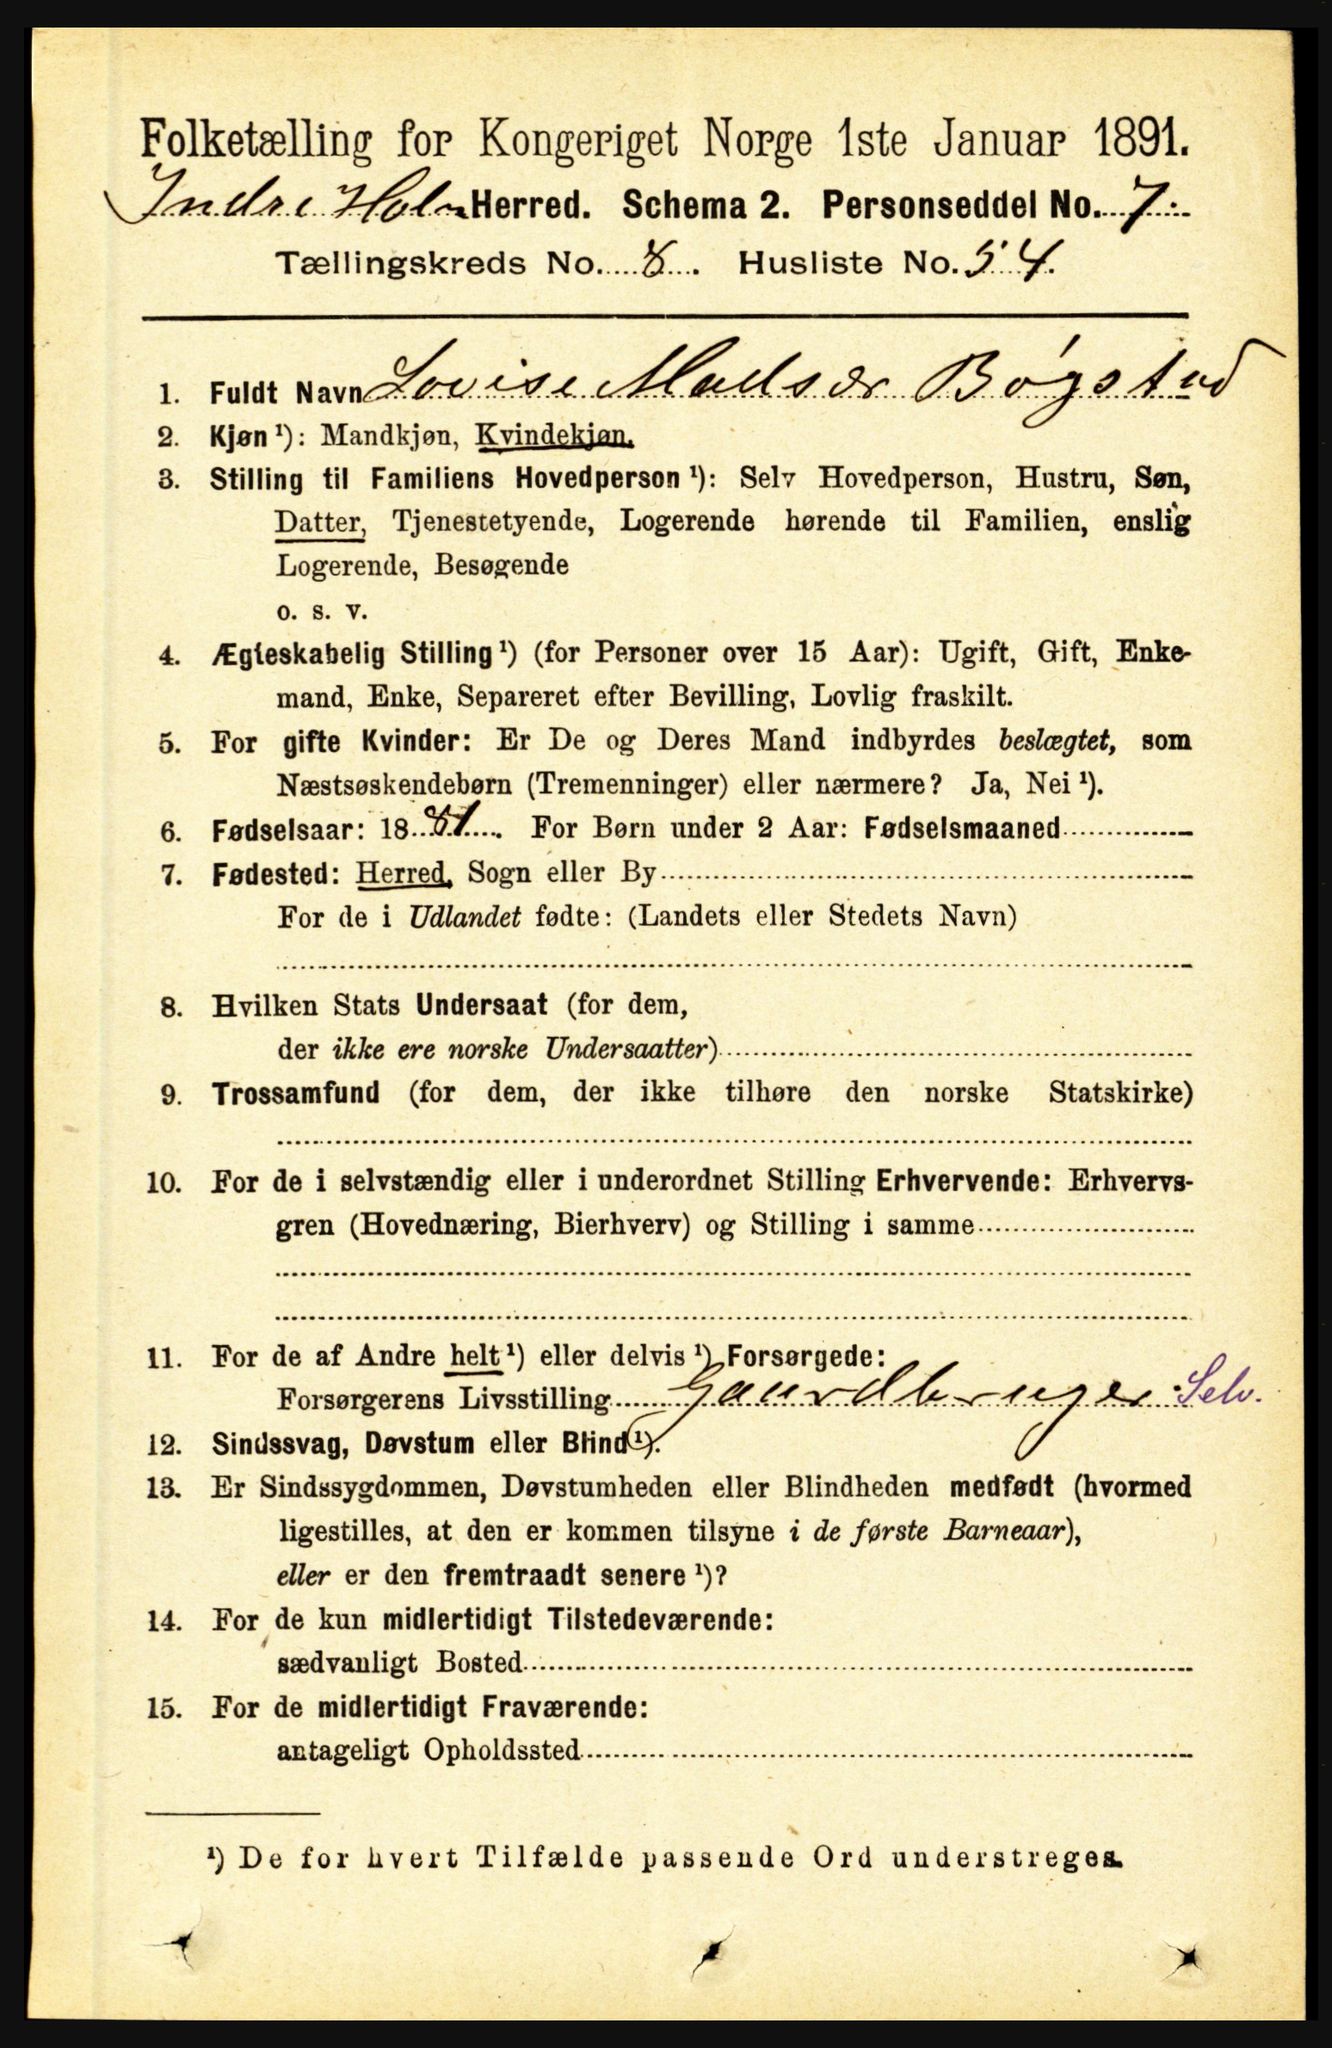 Folketælling for Kongeriget Norge 1ste Januar 1891.
Indre Holm Herred. Schema 2. Personseddel No. 7.
Tællingskreds No. 8. Husliste No. 54.
1. Fuldt Navn Lovise Madsdr Bøgstad
2. Kjøn ¹): Mandkjøn, Kvindekjøn.
3. Stilling til Familiens Hovedperson ¹): Selv Hovedperson, Hustru, Søn,
Datter, Tjenestetyende, Logerende hørende til Familien, enslig
Logerende, Besøgende
o. s. v.
4. Ægteskabelig Stilling ¹) (for Personer over 15 Aar): Ugift, Gift, Enke-
mand, Enke, Separeret efter Bevilling, Lovlig fraskilt.
5. For gifte Kvinder: Er De og Deres Mand indbyrdes beslægtet, som
Næstsøskendebørn (Tremenninger) eller nærmere? Ja, Nei ¹).
6. Fødselsaar: 1881. For Børn under 2 Aar: Fødselsmaaned
7. Fødested: Herred, Sogn eller By
For de i Udlandet fødte: (Landets eller Stedets Navn)
8. Hvilken Stats Undersaat (for dem,
der ikke ere norske Undersaatter)
9. Trossamfund (for dem, der ikke tilhøre den norske Statskirke)
10. For de i selvstændig eller i underordnet Stilling Erhvervende: Erhvervs-
gren (Hovednæring, Bierhverv) og Stilling i samme
11. For de af Andre helt ¹) eller delvis ¹) Forsørgede:
Forsørgerens Livsstilling Gaardbruger Selv.
12. Sindssvag, Døvstum eller Blind ¹).
13. Er Sindssygdommen, Døvstumheden eller Blindheden medfødt (hvormed
ligestilles, at den er kommen tilsyne i de første Barneaar),
eller er den fremtraadt senere ¹)?
14. For de kun midlertidigt Tilstedeværende:
sædvanligt Bosted
15. For de midlertidigt Fraværende:
antageligt Opholdssted
¹) De for hvert Tilfælde passende Ord understreges.